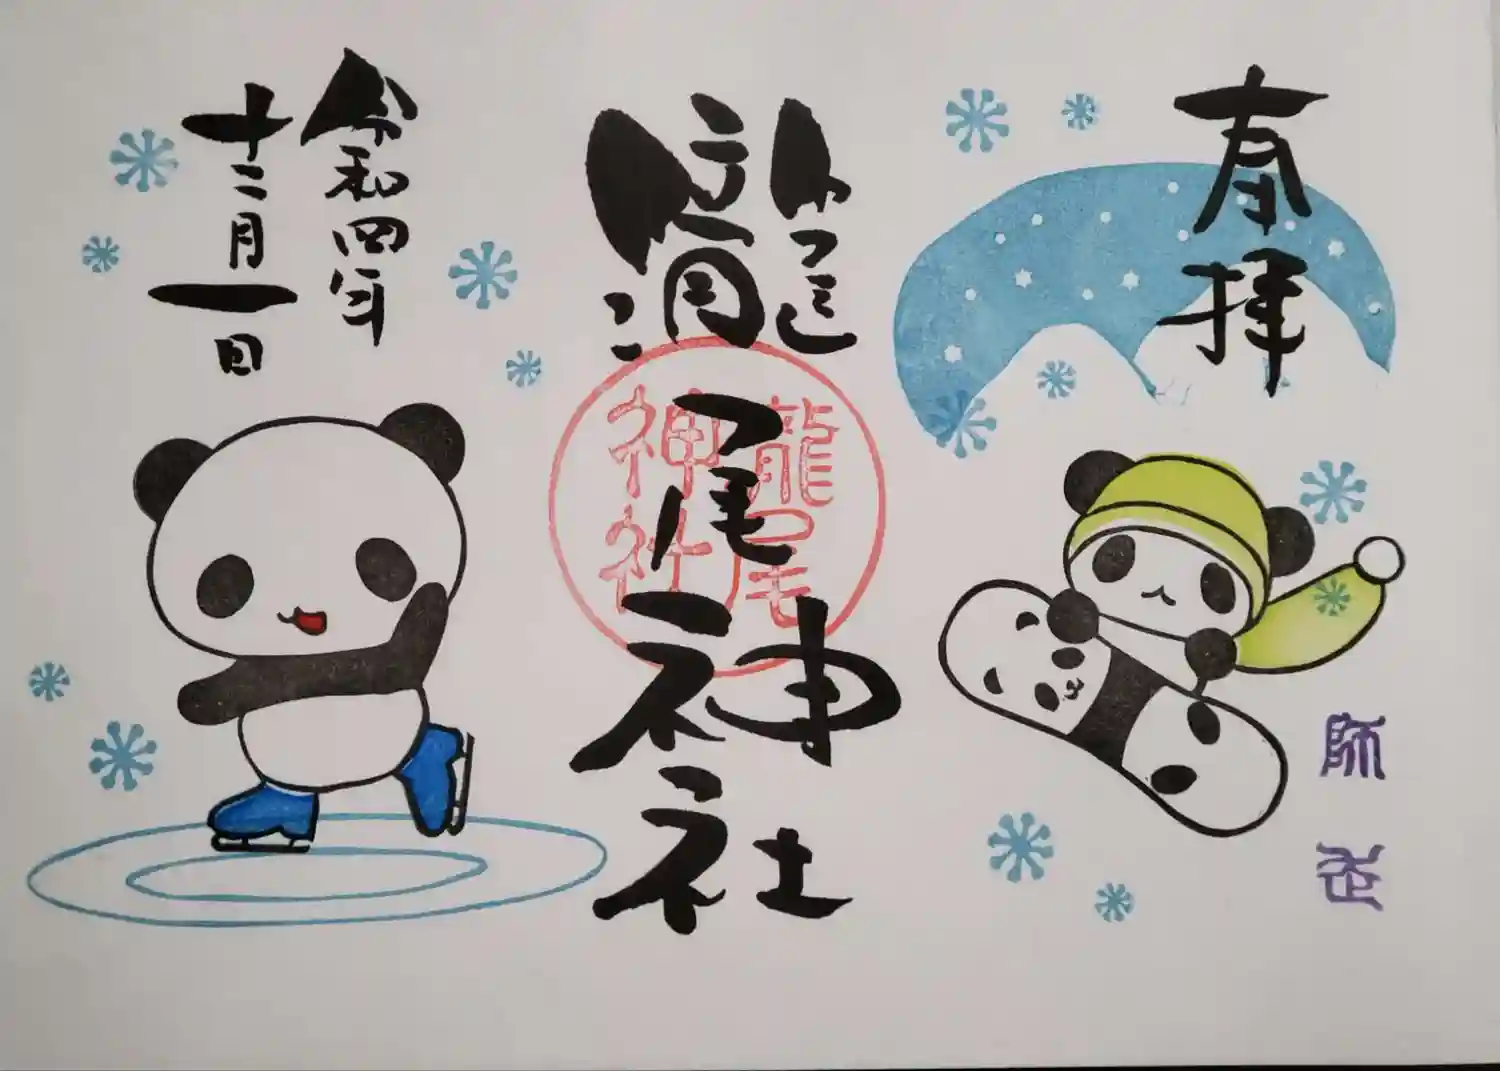 奉拝
師走
瀧尾神社
龍尾
神社
令和四年
十二月一日